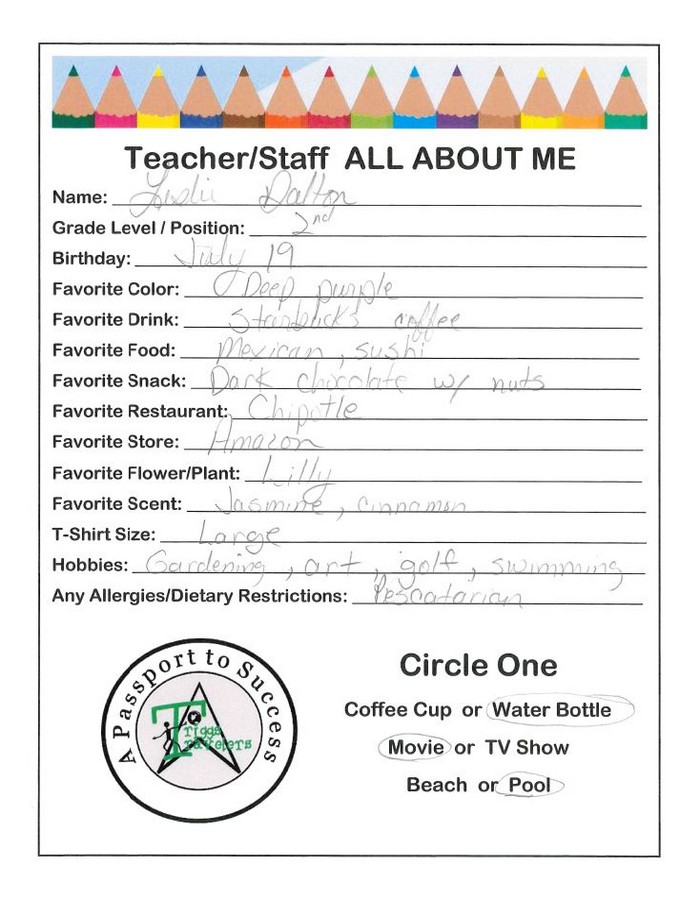 Teacher/Staff ALL ABOUT ME
Name: Leslie Dalton
Grade Level / Position: 2nd
Birthday: July 19
Favorite Color: Deep purple
Favorite Drink: Starbucks coffee
Favorite Food: Mexican, sushi
Favorite Snack: Dark chocolate w/ nuts
Favorite Restaurant: Chipotle
Favorite Store: Amazon
Favorite Flower/Plant: Lilly
Favorite Scent: Jasmine, cinnamon
T-Shirt Size: Large
Hobbies: Gardening, art, golf, swimming
Any Allergies/Dietary Restrictions: Pescatarian
A Passport to Success
Triggs
Travelers
Circle One
Coffee Cup or Water Bottle
Movie or TV Show
Beach or Pool